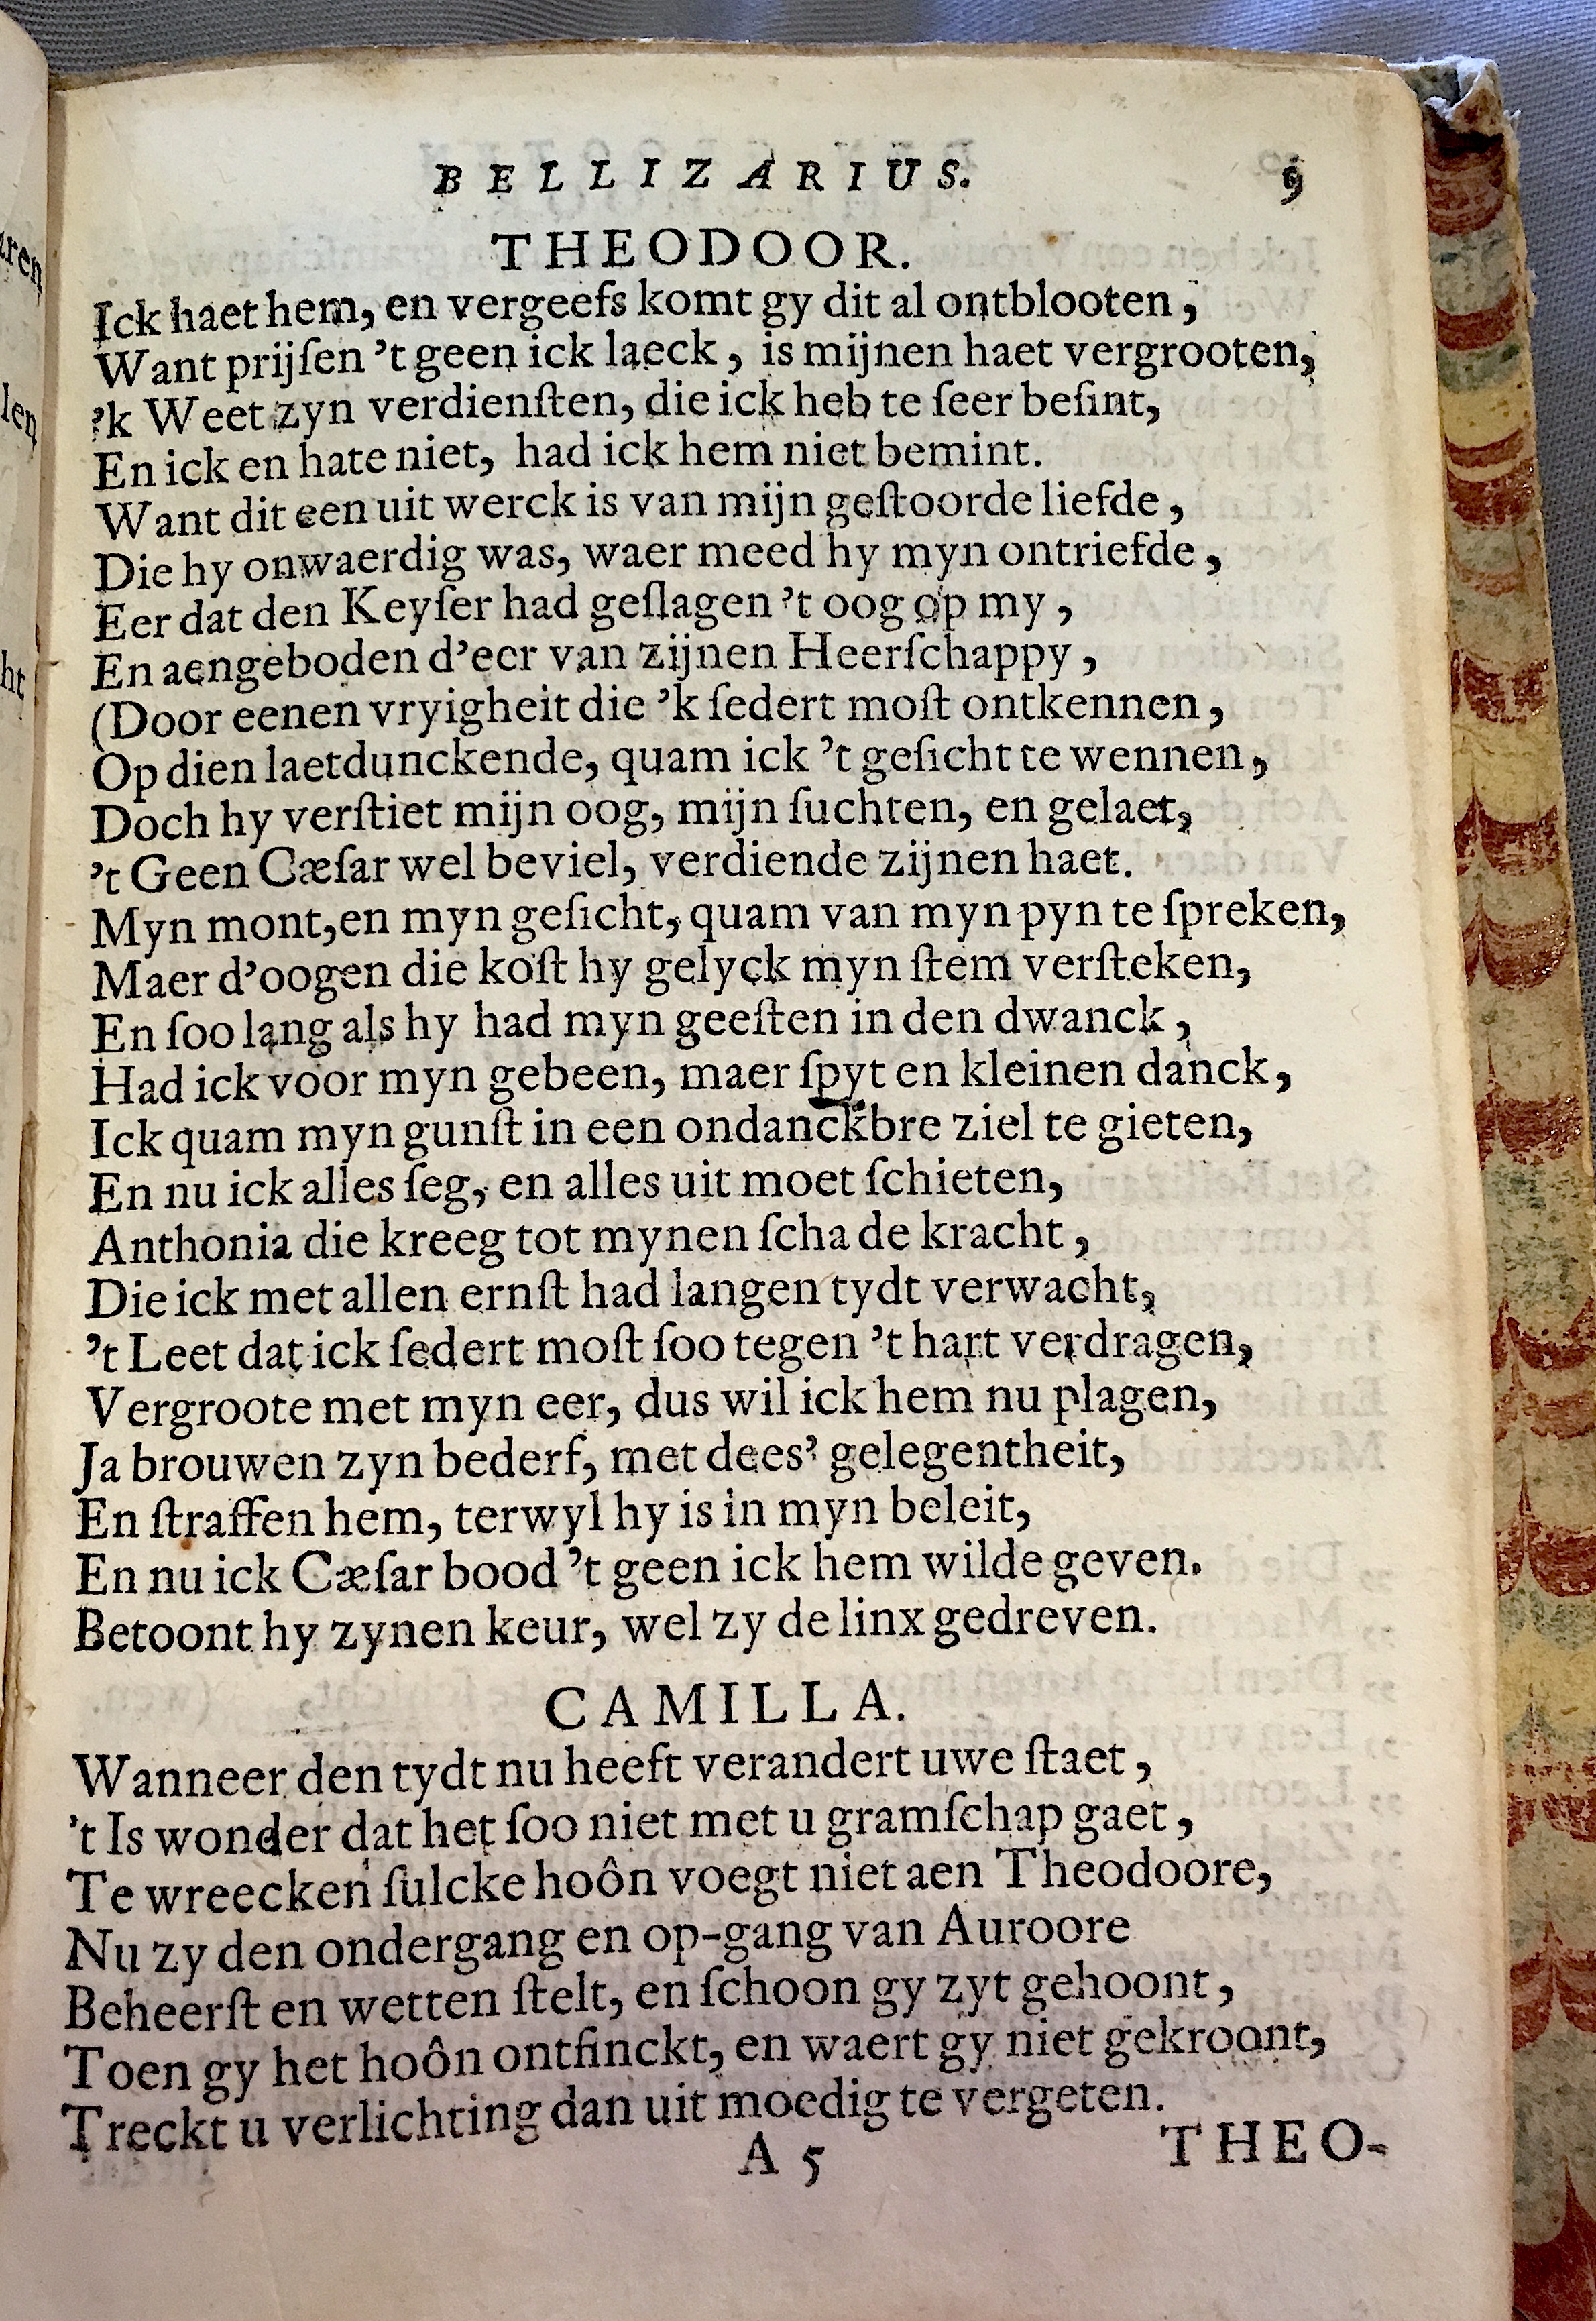 BELLIZARIUS. 9
THEODOOR.
Ick haet hem, en vergeefs komt gy dit al ontblooten,
Want prijſen 't geen ick laeck, is mijnen haet vergrooten,
'k Weet zyn verdienſten, die ick heb te ſeer beſint,
En ick en hate niet, had ick hem niet bemint.
Want dit een uit werck is van mijn geſtoorde liefde,
Die hy onwaerdig was, waer meed hy myn ontriefde,
Eer dat den Keyſer had geſlagen 't oog op my,
En aengeboden d'eer van zijnen Heerſchappy,
(Door eenen vryigheit die 'k ſedert moſt ontkennen,
Op dien laetdunckende, quam ick 't geſicht te wennen,
Doch hy verſtiet mijn oog, mijn ſuchten, en gelaet,
't Geen Cæſar wel beviel, verdiende zijnen haet.
Myn mont, en myn geſicht, quam van myn pyn te ſpreken,
Maer d'oogen die koſt hy gelyck myn ſtem verſteken,
En ſoo lang als hy had myn geeſten in den dwanck,
Had ick voor myn gebeen, maer ſpyt en kleinen danck,
Ick quam myn gunſt in een ondanckbre ziel te gieten,
En nu ick alles ſeg, en alles uit moet ſchieten,
Anthonia die kreeg tot mynen ſcha de kracht,
Die ick met allen ernſt had langen tydt verwacht,
't Leet dat ick ſedert moſt ſoo tegen 't hart verdragen,
Vergroote met myn eer, dus wil ick hem nu plagen,
Ja brouwen zyn bederf, met dees' gelegentheit,
En ſtraffen hem, terwyl hy is in myn beleit,
En nu ick Cæſar bood 't geen ick hem wilde geven.
Betoont hy zynen keur, wel zy de linx gedreven.
CAMILLA.
Wanneer den tydt nu heeft verandert uwe ſtaet,
't Is wonder dat het ſoo niet met u gramſchap gaet,
Te wreecken ſulcke hoôn voegt niet aen Theodoore,
Nu zy den ondergang en op-gang van Auroore
Beheerſt en wetten ſtelt, en ſchoon gy zyt gehoont,
Toen gy het hoôn ontfinckt, en waert gy niet gekroont,
Treckt u verlichting dan uit moedig te vergeten.
A 5 THEO-
aren
len
ht